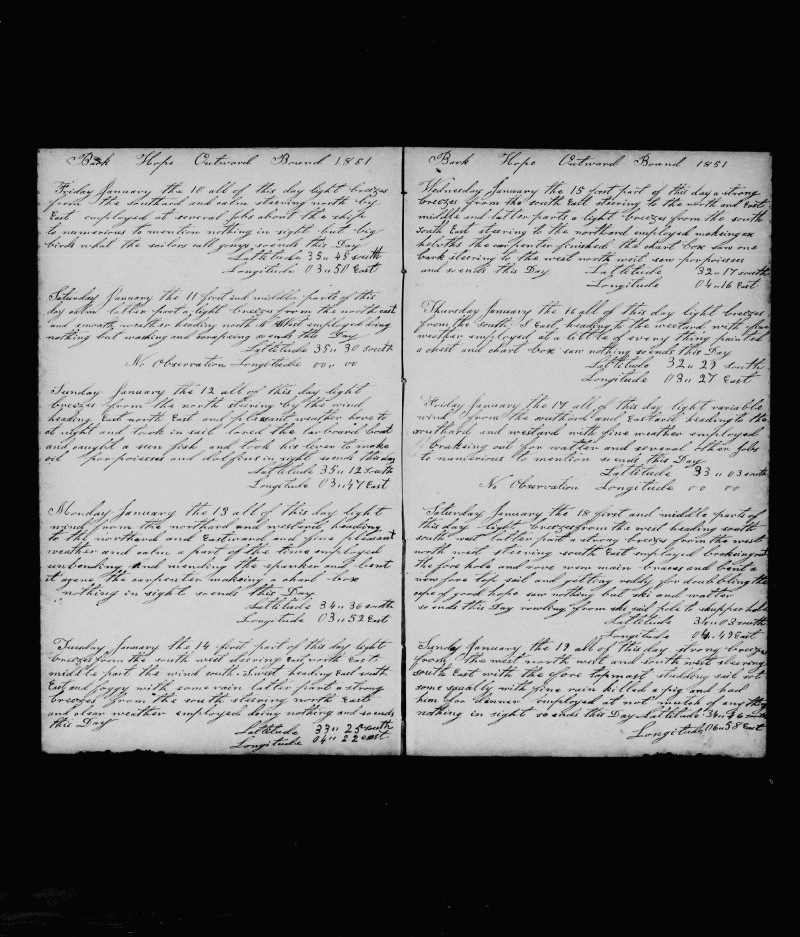 Bark Hope Outward Bound 1851
Friday January the 10 all of this day light breezes
from the southard and calm steering north by
East employed at several jobs about the ship
to numerious to mention nothing in sight but big
birds what the sailors call so ends this Day
Lattitude 35 " 45 south
Longitude 03 " 50 East
Saturday January the 11 first and middle parts of this
day calm latter part a light breezes from the north east
and smooth weather heading north N West employed doing
nothing but washing and scrapeing so ends this Day
Lattitude 35 " 30 south
No Observation Longitude 00 " 00
Sunday January the 12 all of this day light
breezes from the north steering by the wind
heading East north East and plesant weather hove to
at night and took in sail lored the larboard boat
and caught a sun fish and took his liver to make
oil porpoisses and dolfins in sight so ends this day
Lattitude 35 " 12 South
Longitude 03 " 47 East
Monday January the 13 all of this day light
wind from the northard and westard heading
to the northard and Eastward and fine plesant
weather and calm a part of the time employed
unbending and mending the spanker and bent
it agane the carpenter makeing a chart box
nothing in sight so ends this Day
Lattitude 34 " 36 south
Longitude 03 " 52 East
Tuesday January the 14 first part of this day light
breezes from the south west steering East north East
middle part the wind south S west heading East south
East and foggy with some rain latter part a strong
breezes from the south steering north East
and clear weather employed doing nothing and so ends
this Day
Lattitude 33 " 25 south
Longitude 04 " 22 east
Bark Hope Outward Bound 1851
Wednesday January the 15 first part of this day a strong
breezes from the south East steering to the north and East
middle and latter parts a light breezes from the south
south East steering to the northard employed makeing ax
helveths the carpenter finished the chart box saw one
bark steering to the west north west saw porpoisses
and so ends this Day Lattitude 32 " 17 south
Longitude 04 " 16 East
Thursday January the 16 all of this day light breezes
from the south S East, heading to the westard with fine
weather employed at a little of every thing painted
a chest and chart box saw nothing so ends this Day
Lattitude 32 " 23 south
Longitude 03 " 27 East
Friday January the 17 all of this day light variable
wind from the southard and Eastard heading to the
southard and westard with fine weather employed
breaking out for watter and several other jobs
to numerious to mention so ends this Day
Lattitude 33 " 03 south
No Observation Longitude 00 00
Saturday January the 18 first and middle parts of
this day light breezes from the west heading south
south west latter part a strong breezes from the west
north west steering south East employed brakeing out
the fore hole and rove new main braces and bent a
new fore top sail and getting reddy for doubbling the
cape of good hope saw nothing but ski and watter
so ends this Day rowling from ski sail pole to skupper hole
Lattitude 34 " 03 south
Longitude 04 " 43 East
Sunday January the 19 all of this day strong breezes
from the west north west and south west steering
south East with the fore topmast studding sail set
some squally with fine rain killed a pig and had
him for dinner employed at not mutch of any thing
nothing in sight so ends this Day Lattitude 34 " 46 south
Longitude 06 " 58 East